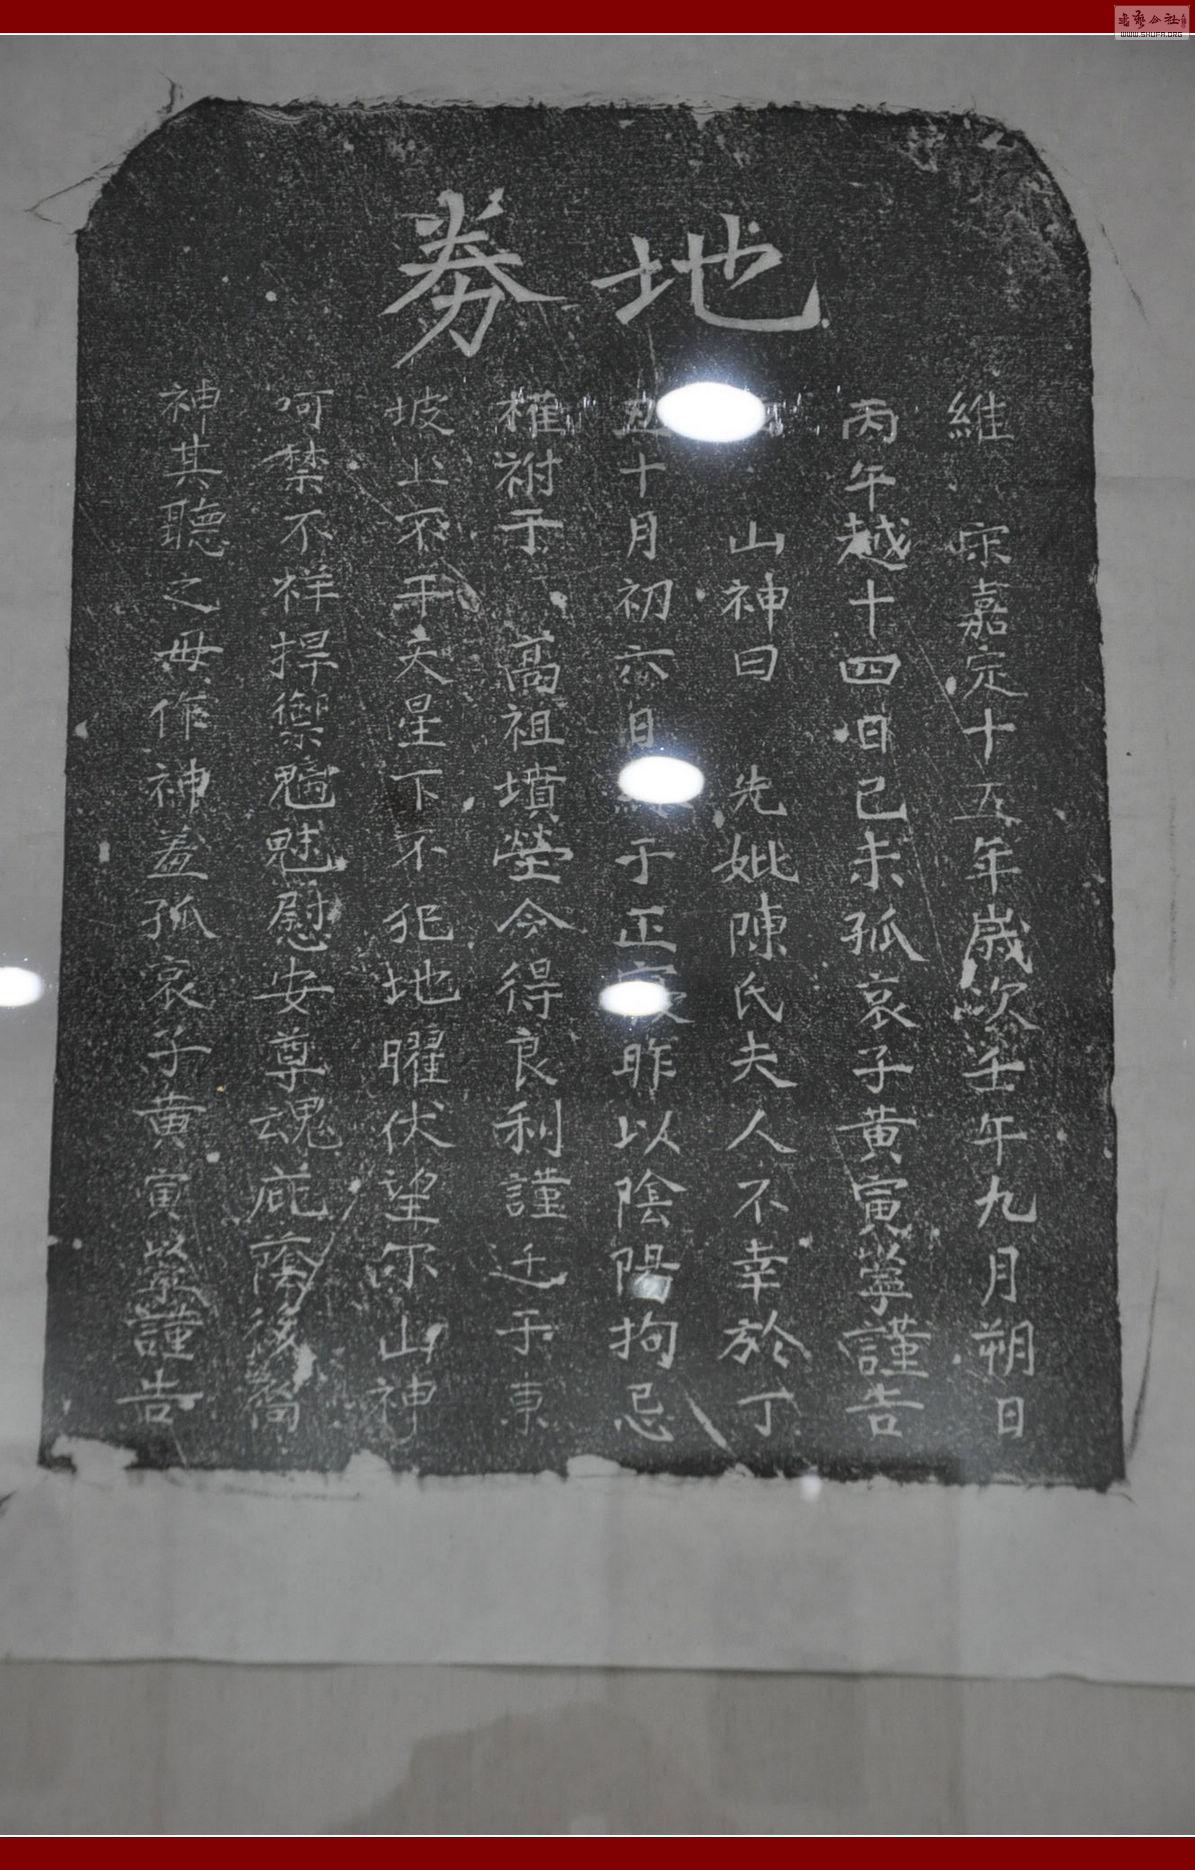 地券
維 宋嘉定十五年歲次壬午九月朔日
丙午越十四日己未孤哀子黃寅等謹告
山神曰 先妣陳氏夫人不幸於丁
丑十月初六日 于正寢昨以陰陽拘忌
權祔于 高祖墳塋今得良利謹迁于東
坡上不干天星下不犯地曜伏望尔山神
呵禁不祥捍禦魑魅慰安尊魂庇蔭後裔
神其聽之毋作神羞孤哀子黃寅等謹告
WWW.SHUFA.ORG